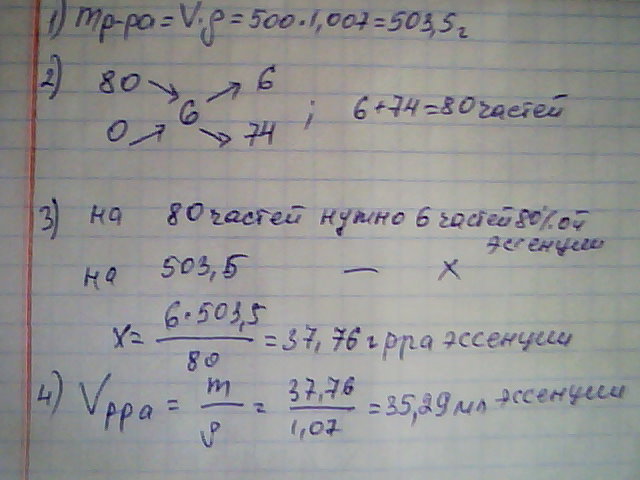 1) mр-ра = V·ρ = 500·1,007 = 503,5 г
2) 80 6
6 ; 6+74=80 частей
0 74
3) на 80 частей нужно 6 частей 80%ой
эссенции
на 503,5 — x
x = 6·503,5 / 80 = 37,76 г рра эссенции
4) Vрра = m / ρ = 37,76 / 1,07 = 35,29 мл эссенции